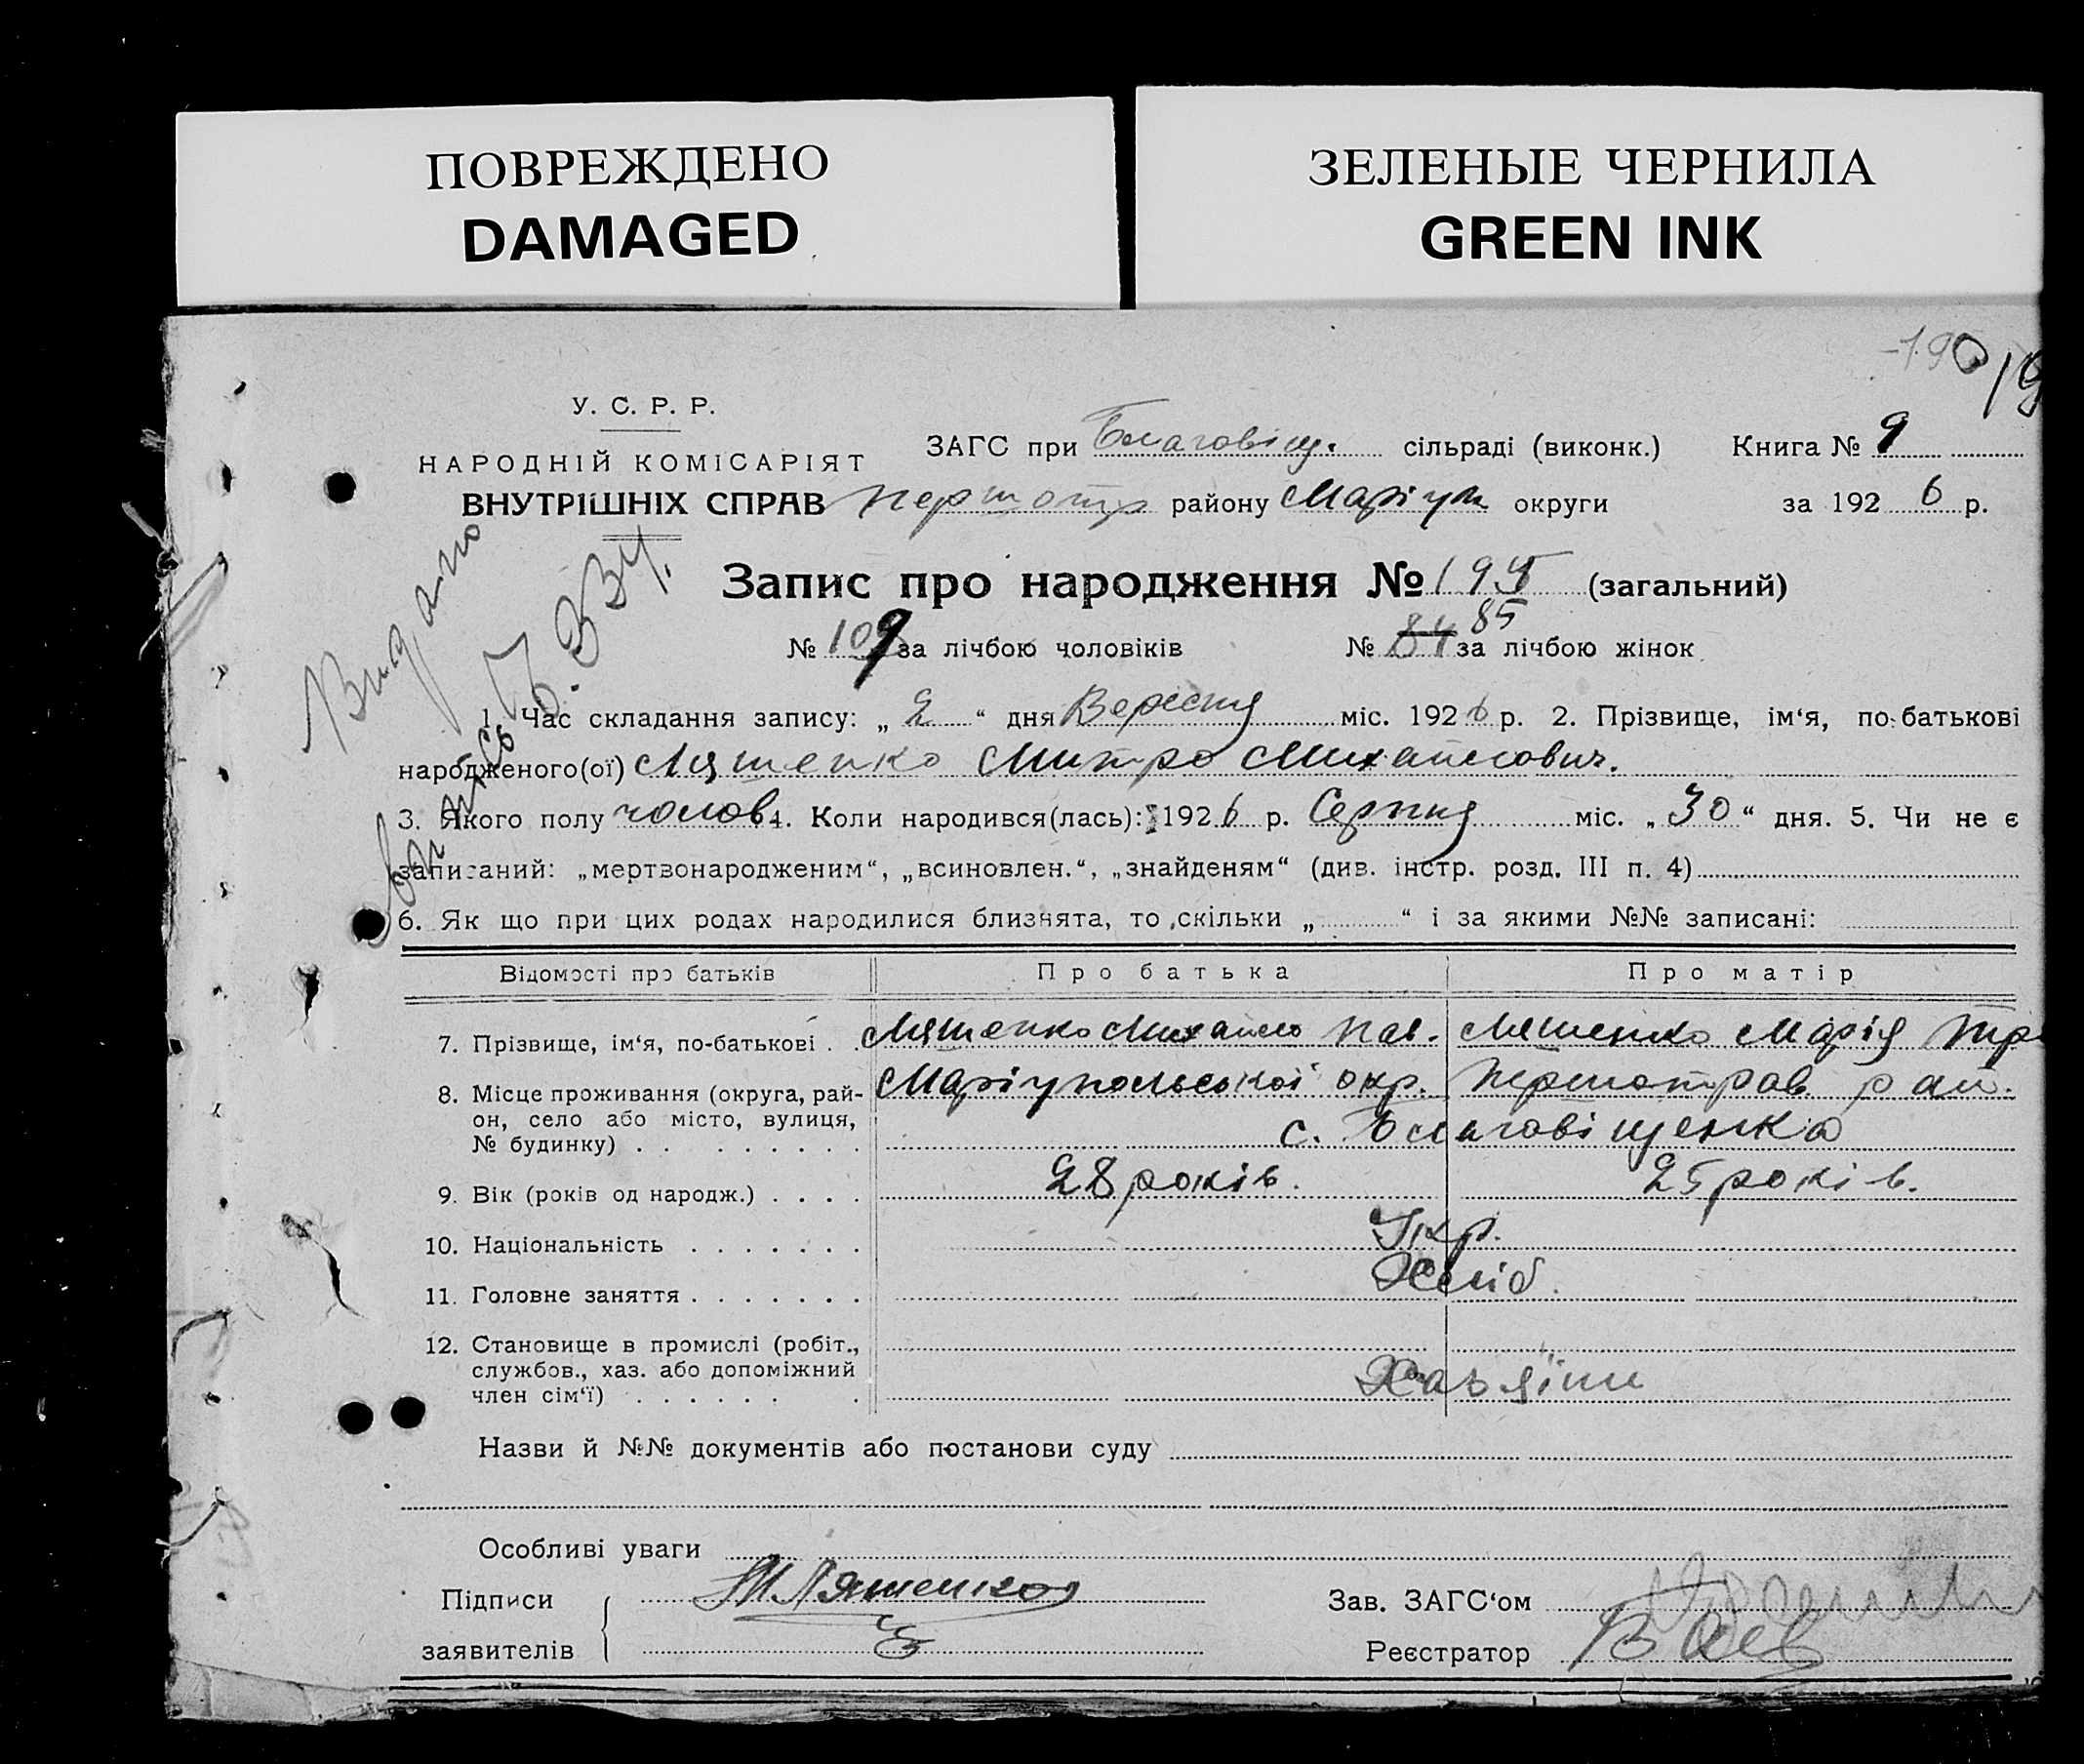 ПОВРЕЖДЕНО
DAMAGED
ЗЕЛЕНЫЕ ЧЕРНИЛА
GREEN INK
У. С. Р. Р.
НАРОДНІЙ КОМІСАРІЯТ
ВНУТРІШНІХ СПРАВ
ЗАГС при Благовіщ. сільраді (виконк.) Книга № 9
району Маріуп округи за 192 6 р.
Видано
Запис про народження № (загальний)
№ 109 за лічбою чоловіків № 84 85 за лічбою жінок
1. Час складання запису: „ 2 “ дня Вересня міс. 192 6 р. 2. Прізвище, ім‘я, по-батькові
народженого(ої) Ляшенко Митро Михайлович.
3. Якого полу чолов. 4. Коли народився(лась): 192 6 р. Серпня міс. „ 30 “ дня. 5. Чи не є
записаний: „мертвонародженим“, „всиновлен.“, „знайденям“ (див. інстр. розд. III п. 4)
6. Як що при цих родах народилися близнята, то скільки „ “ і за якими №№ записані:
Відомості про батьків Про батька Про матір
7. Прізвище, ім‘я, по-батькові . . Ляшенко Михайло Пав. Ляшенко Марія
8. Місце проживання (округа, рай- Маріупольської окр. Першотрав. рай.
он, село або місто, вулиця, с. Благовіщенка
№ будинку) . . . . . . . .
9. Вік (років од народж.) . . . . 28 років. 25 років.
10. Національність . . . . . . . Укр.
11. Головне заняття . . . . . . . Хліб.
12. Становище в промислі (робіт.,
службов., хаз. або допоміжний Хазяїни
член сім‘ї) . . . . . . .
Назви й №№ документів або постанови суду
Особливі уваги
Підписи М Ляшенко Зав. ЗАГС‘ом
заявителів Реєстратор